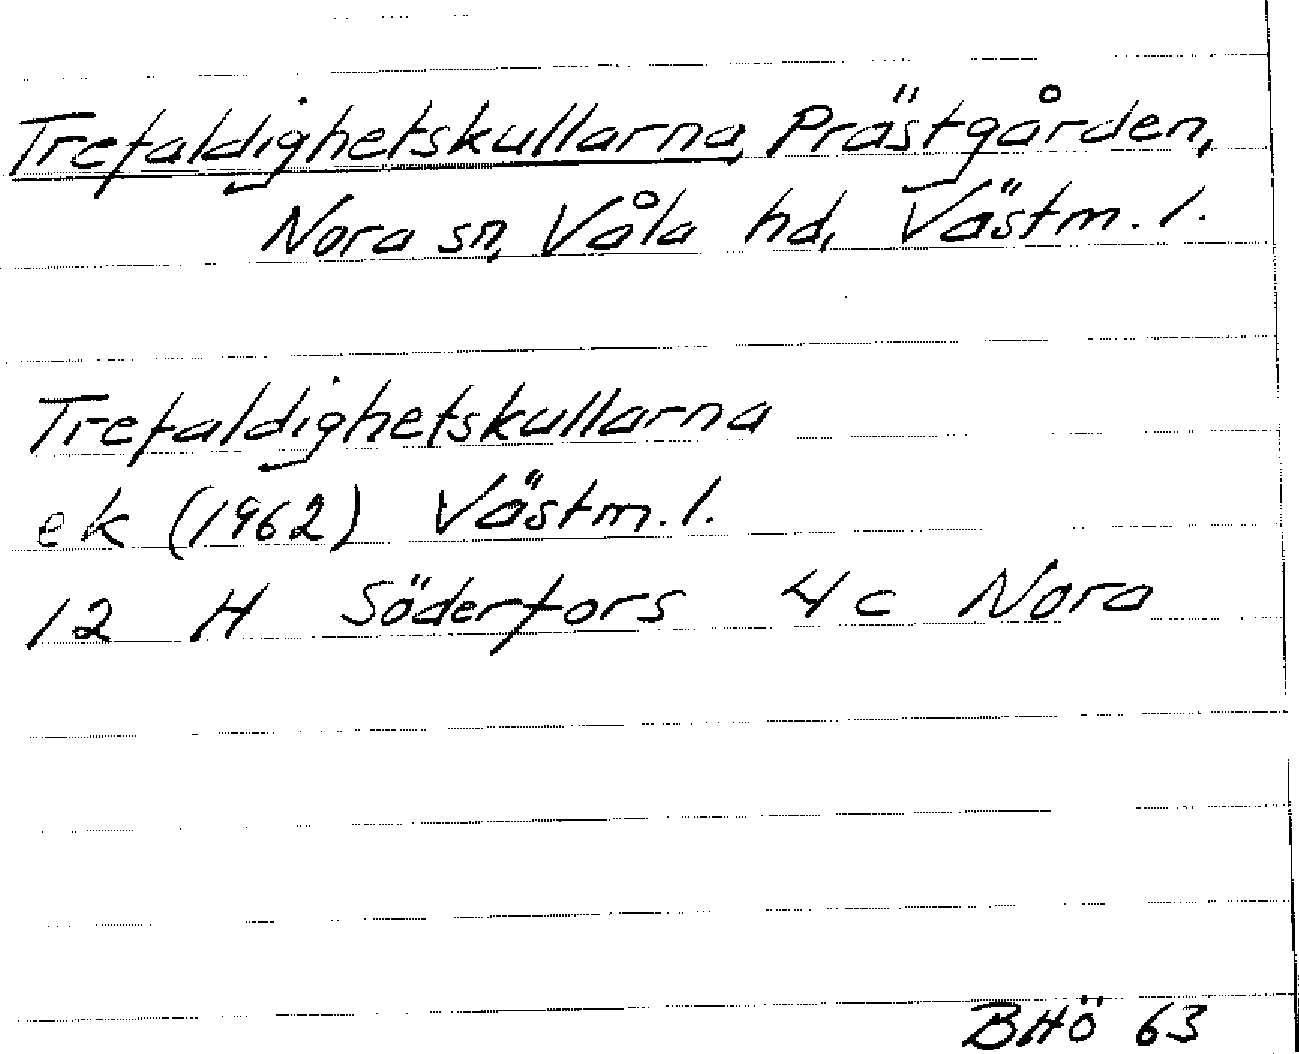 Trefaldighetskullarna, Prästgården,
Nora sn, Våla hd, Västm. l.
Trefaldighetskullarna
ek (1962) Västm. l.
12 H Söderfors 4c Nora
BHö 63